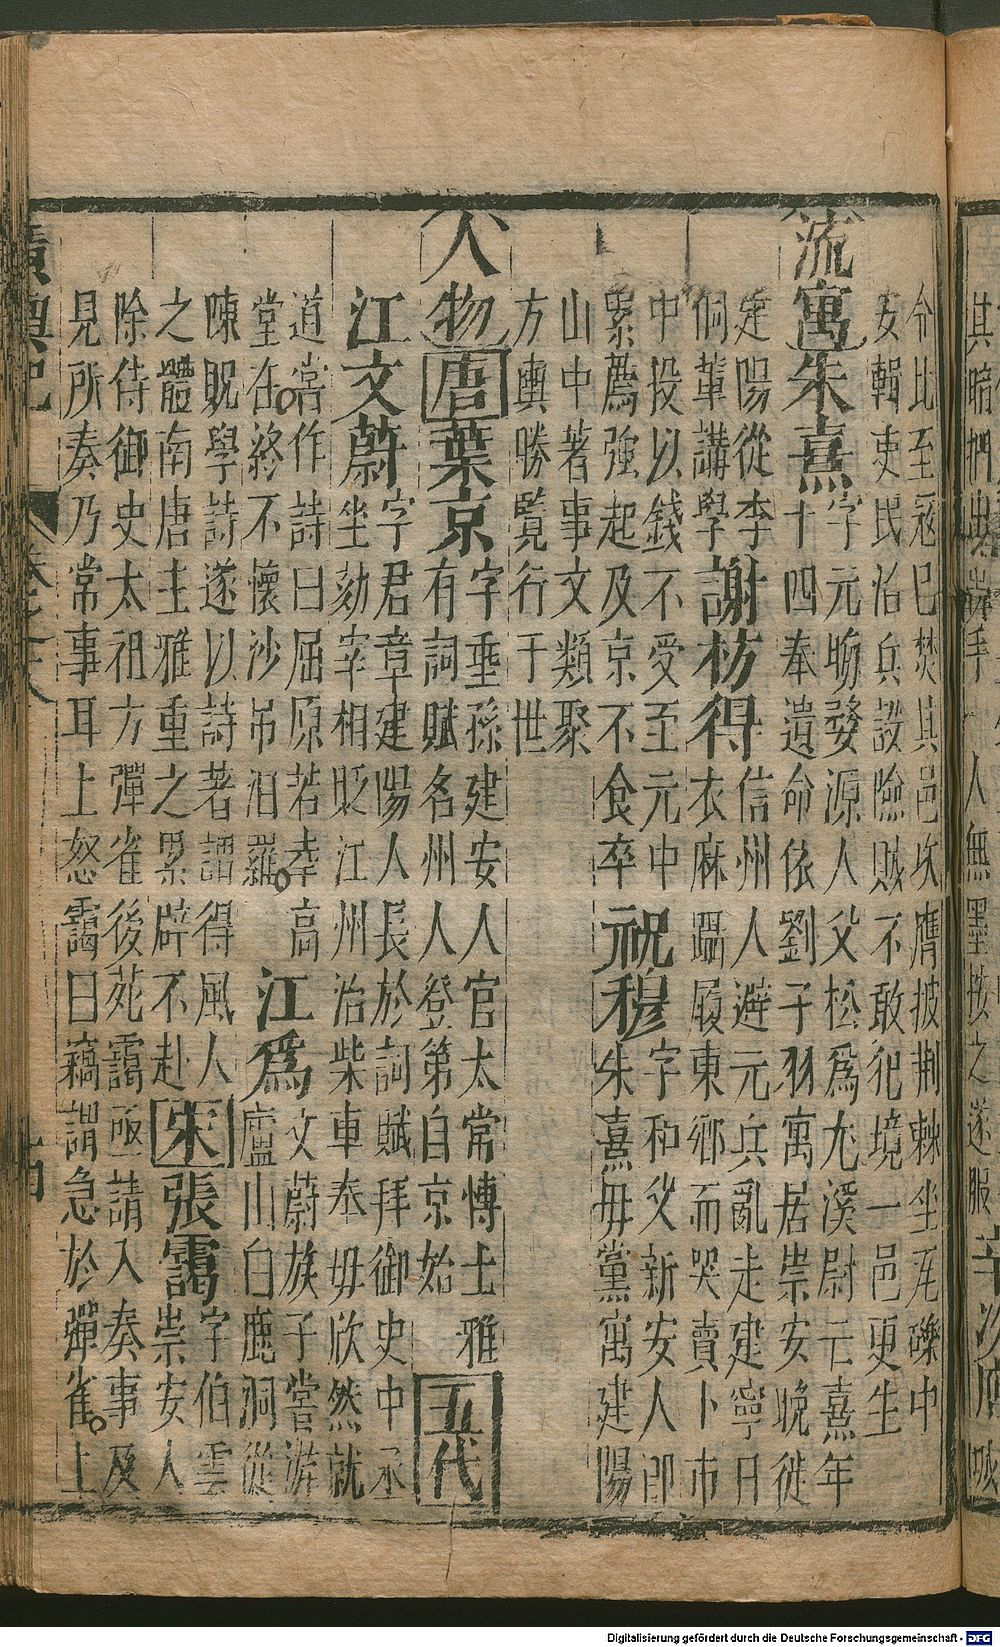 其暗捫出手一人無墨按之遂服 辛次膺
令比至冦巳焚其邑坎膺披荆棘坐瓦礫中
安輯吏民治兵設險賊不敢犯境一邑更生
流寓 朱熹 字元晦婺源人父松爲尤溪尉云熹年
十四奉遺命依劉子羽寓居崇安晚徙
建陽從李
侗輩講學 謝枋得 信州人避元兵亂走建寧日
衣麻躡履東鄉而哭賣卜市
中投以錢不受至元中
累薦強起及京不食卒 祝穆 字和父新安人即
朱熹母黨寓建陽
山中著事文類聚
方輿勝覽行于世
人物 唐 葉京 字垂孫建安人官太常博士雅
有詞賦名州人登第自京始 五代
江文蔚 字君章建陽人長於詞賦拜御史中丞
坐劾宰相貶江州治柴車奉母欣然就
道嘗作詩曰屈原若幸高
堂在終不懷沙吊汨羅 江爲 文蔚族子嘗游
廬山白鹿洞從
陳貺學詩遂以詩著謂得風人
之體南唐主雅重之累辟不赴 宋 張靄 字伯雲
崇安人
除侍御史太祖方彈雀後苑靄亟請入奏事及
見所奏乃常事耳上怒靄曰竊謂急於彈雀上
廣輿記 卷之十八 十四
Digitalisierung gefördert durch die Deutsche Forschungsgemeinschaft - DFG